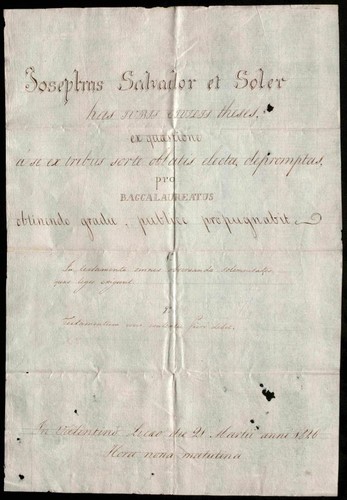 Josephus Salvador et Soler
has JURIS CIVILIS theses,
ex quæstione
a se ex tribus sorte oblatis electa, depromptas,
pro
BACCALAUREATUS
obtinendo gradu, publice propugnabit
1ª
In testamento omnes observandæ solemnitates,
quas leges
2ª
Testamentum
In Valentino Liceo die 21 Martii anni 1826
Hora nona matutina